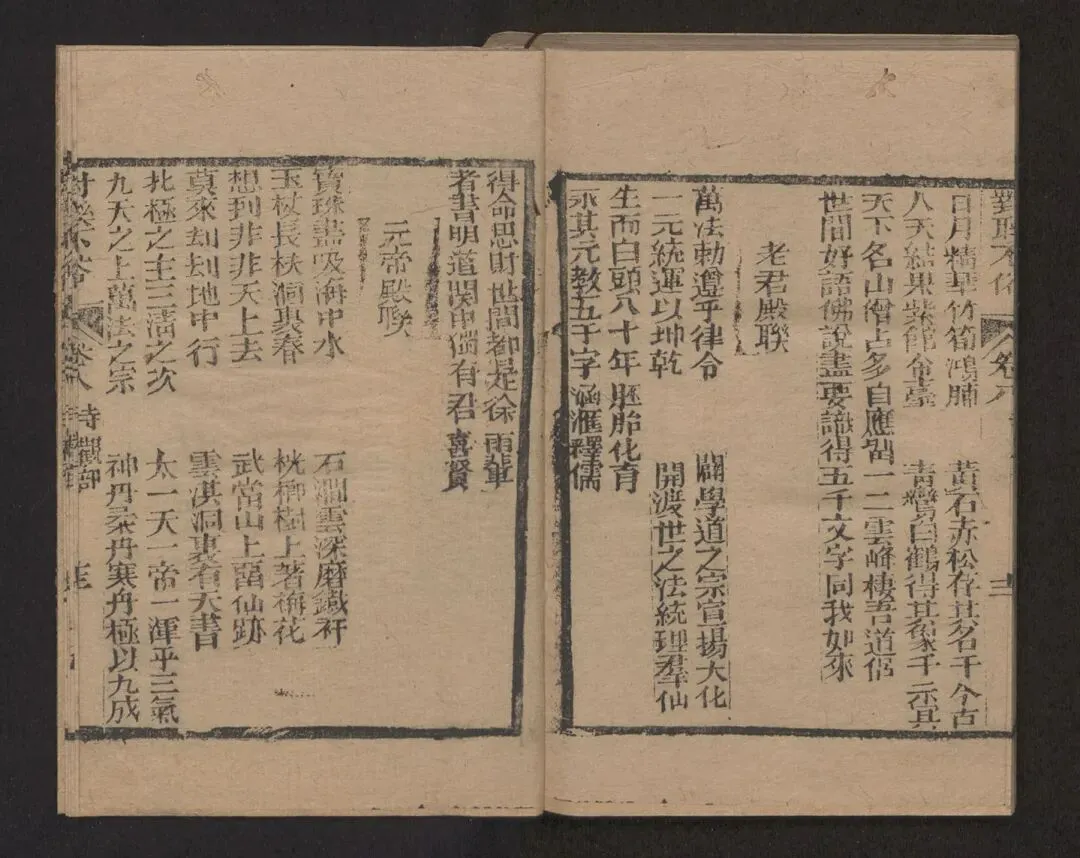 對聯不俗 卷八
日月精華竹筍鴻脯 黃石赤松存其名千今古
八天結果紫館金臺 青鸞白鶴得其象千示具
天下名山僧占多自應留一二雲峰棲吾道侶
世間好語佛說盡要識得五千文字同我如來
老君殿聯
萬法勅遵乎律令 闢學道之宗宣揚大化
一元統運以坤乾 開渡世之法統理羣仙
生而白頭八十年胚胎化育
示其元教五千字涵滙釋儒
得命思財世間都是徐雨輩
著書明道関中獨有君喜賢
元帝殿聯
寶珠盡吸海中水 石澗雲深磨鐵杆
玉杖長扶洞裏春 桄榔樹上著梅花
想到非非天上去 武當山上留仙跡
莫來却却地中行 雲淇洞裏有天書
北極之主三清之次 太一天一帝一渾乎三氣
九天之上萬法之宗 神丹朵丹寒丹極以九成
對聯不俗 卷八 寺觀部